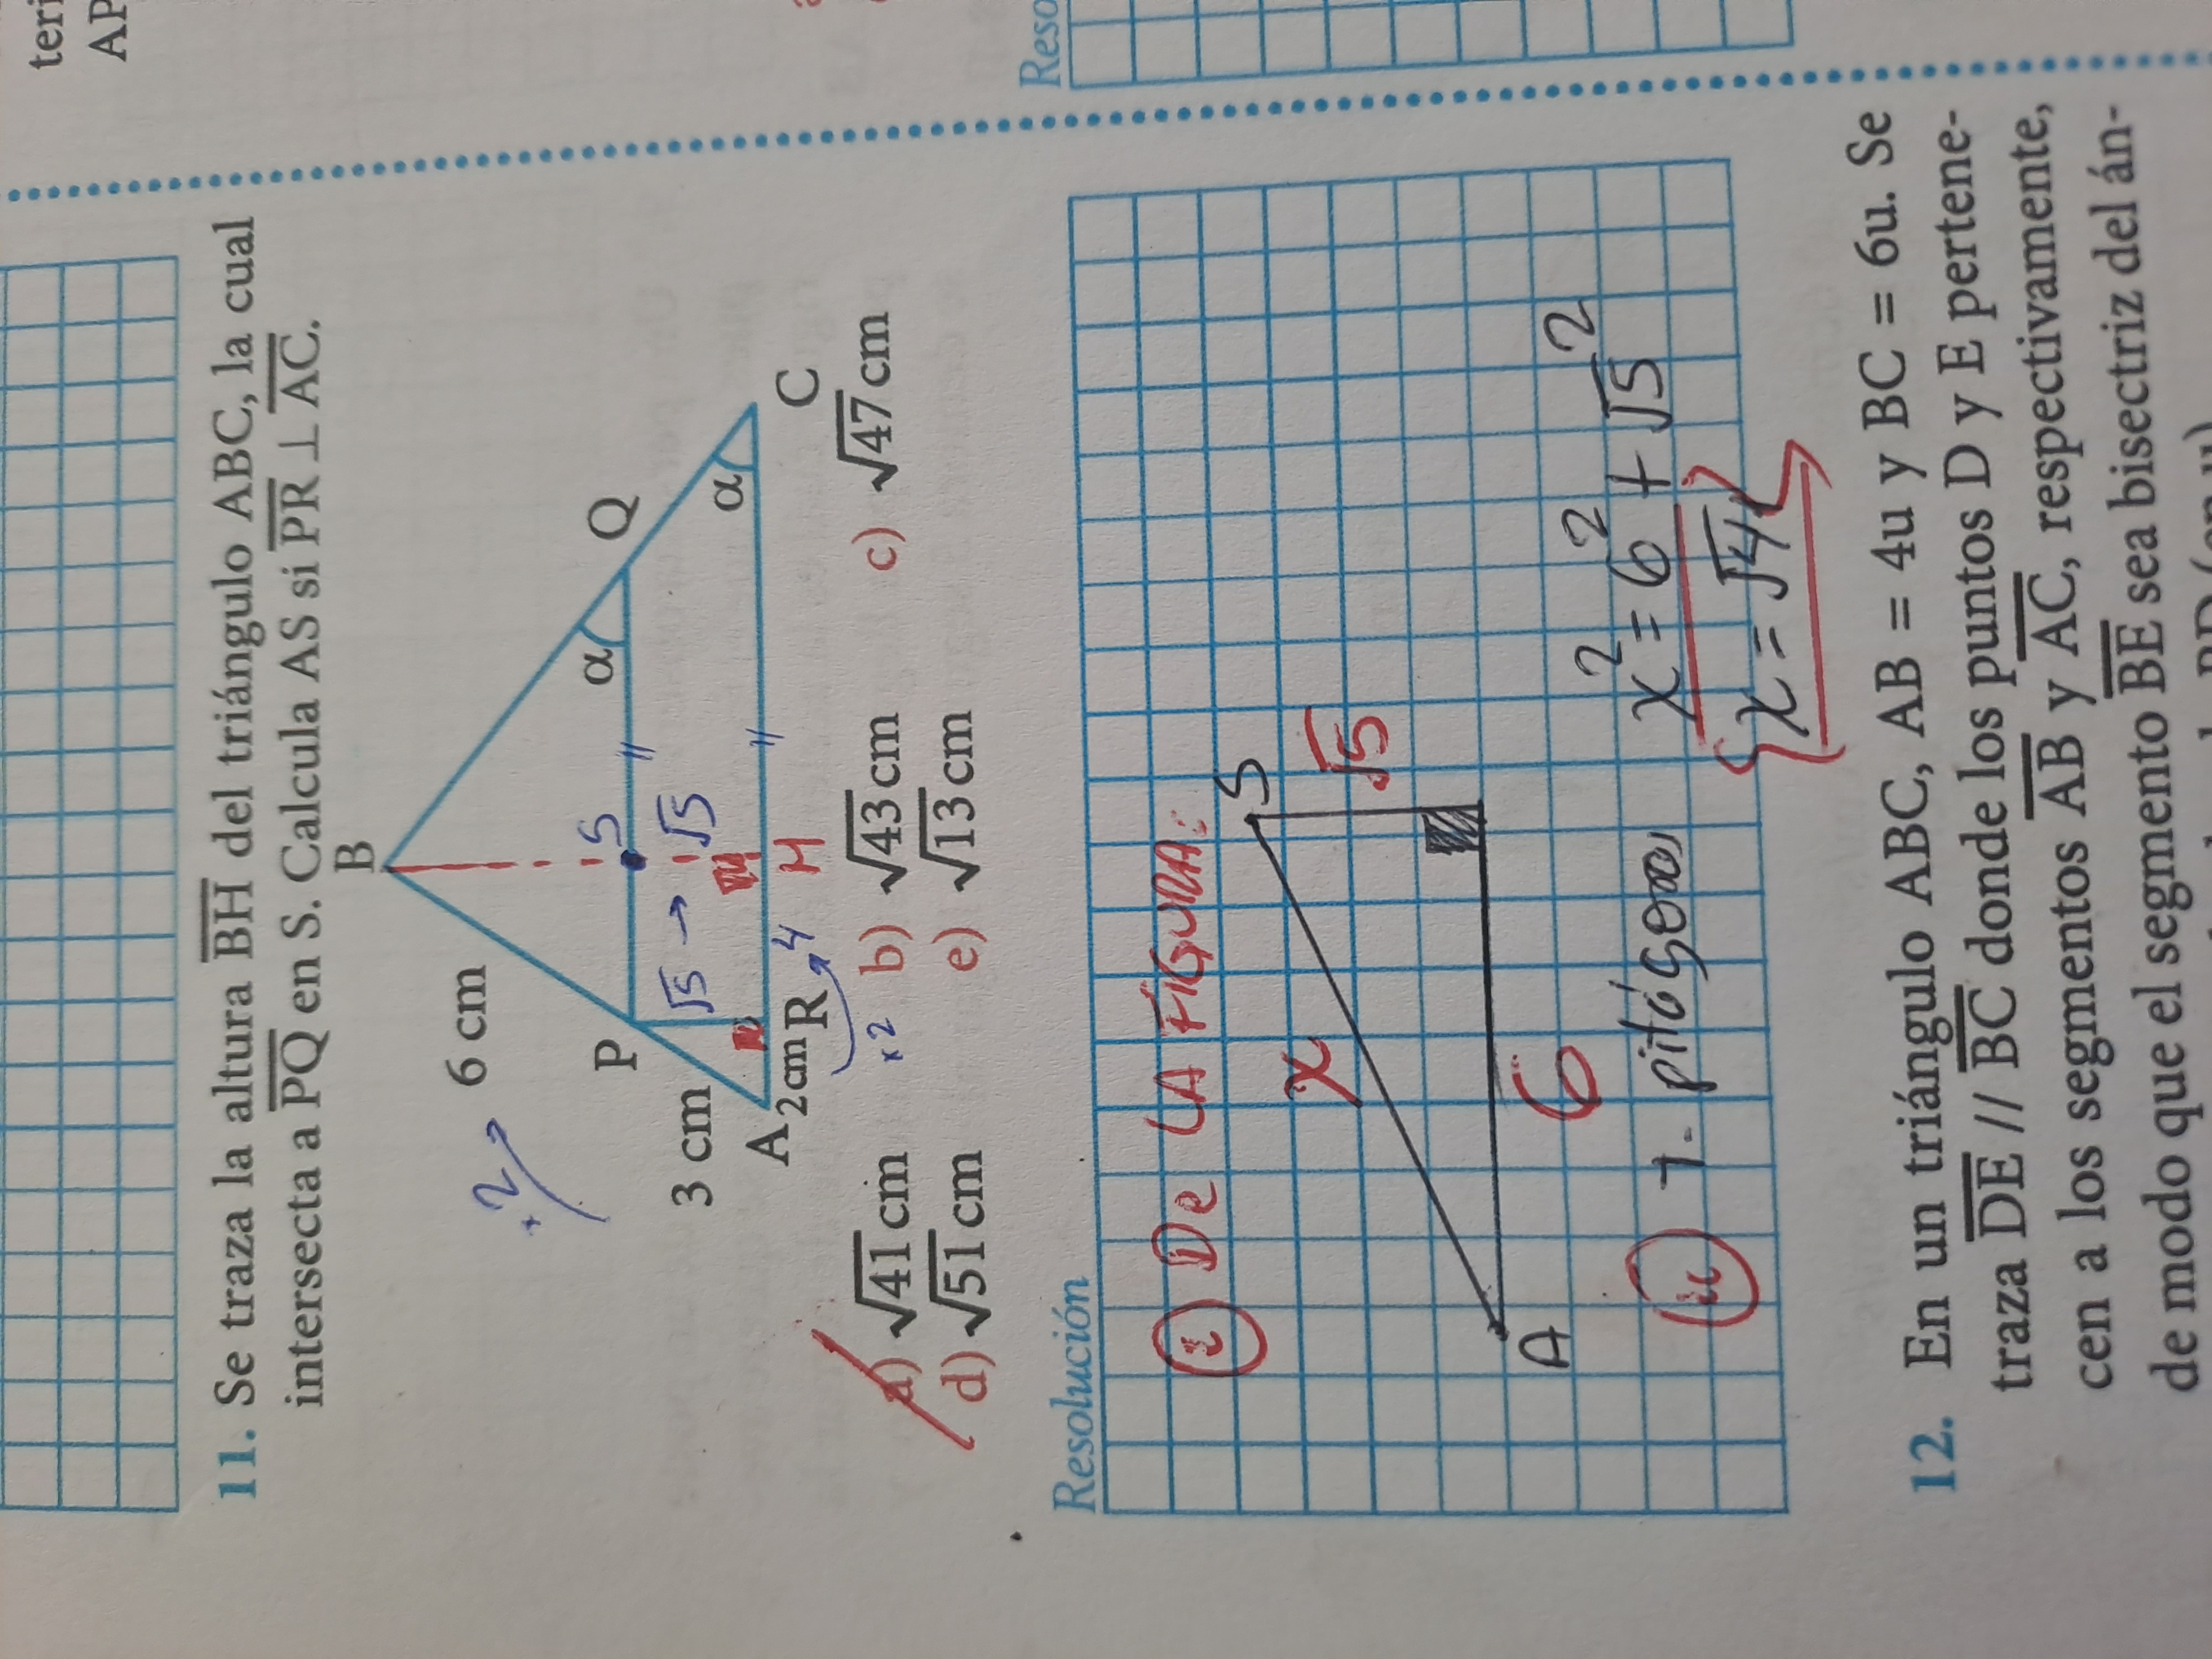 teri
AP
11. Se traza la altura BH del triángulo ABC, la cual
intersecta a PQ en S. Calcula AS si PR ⊥ AC.
B
6 cm
×2
P
S
α
Q
3 cm
√5 → √5
α
A
2cm
R
4
H
C
×2
a) √41 cm b) √43 cm c) √47 cm
d) √51 cm e) √13 cm
Resolución
Reso
i De LA FIGURA:
S
x
√5
A
6
ii T. pitágoras x² = 6² + √5²
x = √41
12. En un triángulo ABC, AB = 4u y BC = 6u. Se
traza DE // BC donde los puntos D y E pertene-
cen a los segmentos AB y AC, respectivamente,
de modo que el segmento BE sea bisectriz del án-
BD (en u)